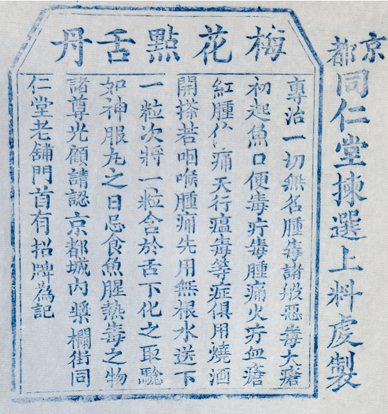 京都同仁堂揀選上料虔製
梅花點舌丹
專治一切無名腫毒諸般惡毒大瘡
初起魚口便毒疔毒腫痛火疔血瘡
紅腫作痛天行瘟毒等症俱用燒酒
開搽若咽喉腫痛先用無根水送下
一粒次將一粒含於舌下化之取驗
如神服丸之日忌食魚腥熱毒之物
諸尊光顧請認京都城內柵欄街同
仁堂老舖門首有招牌為記